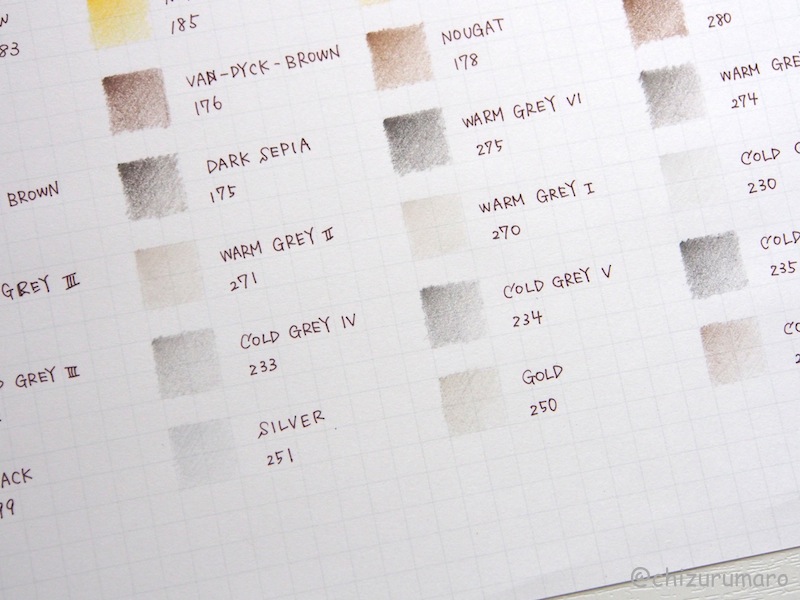 83
185
280
VAN-DYCK-BROWN
176
NOUGAT
178
WARM GRE
274
BROWN
DARK SEPIA
175
WARM GREY VI
275
COLD
230
GREY III
WARM GREY II
271
WARM GREY I
270
COLD
235
GREY III
COLD GREY IV
233
COLD GREY V
234
CO
2
ACK
99
SILVER
251
GOLD
250
@chizurumaro